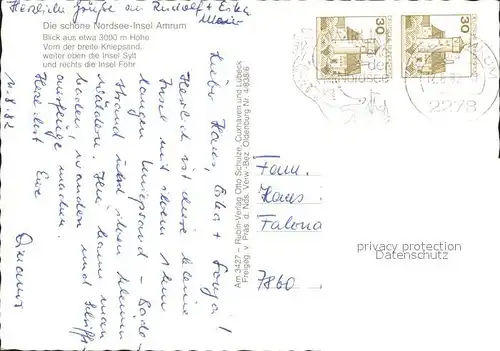 Herzliche Grüße an Rudolf + Erika
Die schöne Nordsee-Insel Amrum
Blick aus etwa 3000 m Höhe
Vorn der breite Kniepsand,
weiter oben die Insel Sylt
und rechts die Insel Föhr
11.8.82
Liebe Hans, Erika + Sonja!
Herrlich ist diese kleine
Insel mit ihrem 15 km
langen Kniepsand - Bade-
strand und ihren kleinen
Wäldern. Hier kann man
baden, wandern und Schiffs-
ausflüge machen.
Herzlichst Eure
Am 3427 - Rubin-Verlag Otto Schulze, Cuxhaven und Lübeck
Freigeg. v. Präs. d. Nds. Verw.-Bez. Oldenburg Nr. 4/838/6
30
30
2278
Fam.
Hans
7860
privacy protection
Datenschutz